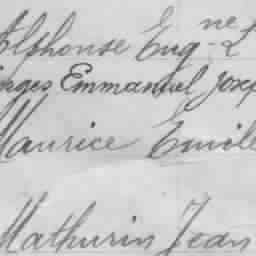 Alphonse Eug-ne L
orges Emmanuel Josep
Maurice Emile
Mathurin Jean